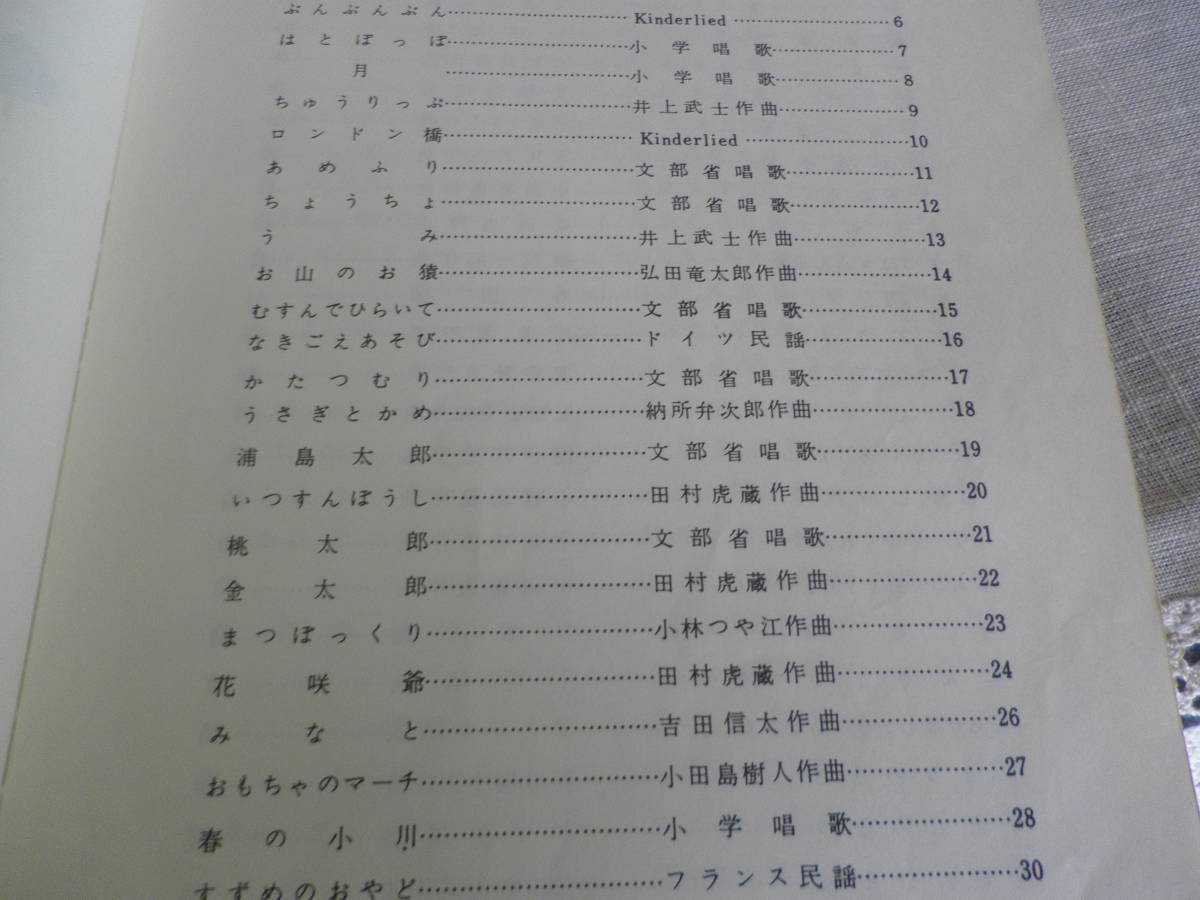 ぶんぶんぶん Kinderlied 6
はとぽっぽ 小学唱歌 7
月 小学唱歌 8
ちゅうりっぷ 井上武士作曲 9
ロンドン橋 Kinderlied 10
あめふり 文部省唱歌 11
ちょうちょ 文部省唱歌 12
うみ 井上武士作曲 13
お山のお猿 弘田竜太郎作曲 14
むすんでひらいて 文部省唱歌 15
なきごえあそび ドイツ民謡 16
かたつむり 文部省唱歌 17
うさぎとかめ 納所弁次郎作曲 18
浦島太郎 文部省唱歌 19
いつすんぼうし 田村虎蔵作曲 20
桃太郎 文部省唱歌 21
金太郎 田村虎蔵作曲 22
まつぼっくり 小林つや江作曲 23
花咲爺 田村虎蔵作曲 24
みなと 吉田信太作曲 26
おもちゃのマーチ 小田島樹人作曲 27
春の小川 小学唱歌 28
すずめのおやど フランス民謡 30